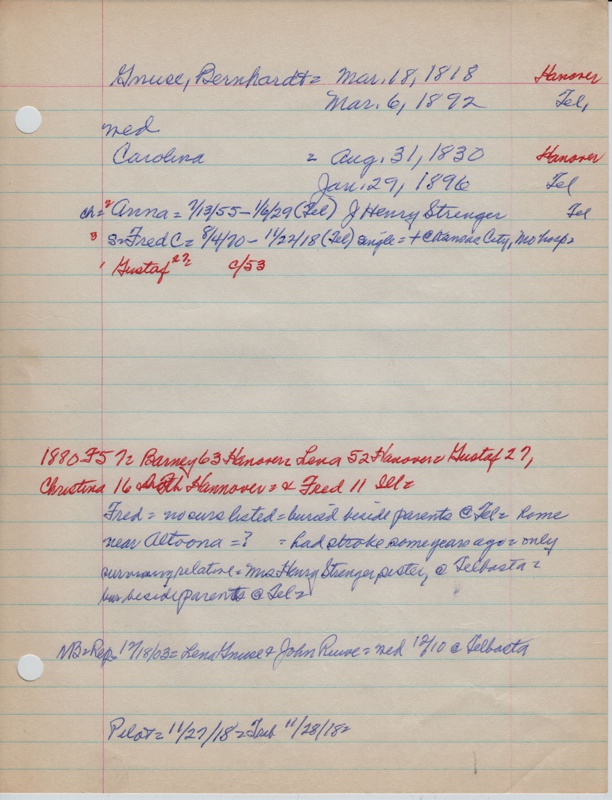 Gnuse, Bernhardt = Mar. 18, 1818 Hanover
Mar. 6, 1892 Tel,
wed
Carolina = Aug. 31, 1830 Hanover
Jan. 29, 1896 Tel
ch = 2 Anna = 7/13/55 – 1/6/29 (Tel) J Henry Strenger Tel
3 s = Fred C = 8/4/70 – 11/22/18 (Tel) single = + @ Kansas City, Mo hosp =
1 Gustaf 27 c/53
1880 F57 = Barney 63 Hanover = Lena 52 Hanover = Gustaf 27,
Christina 16 Hannover = & Fred 11 Ill =
Fred = no surs listed = buried beside parents @ Tel = home
near Altoona = ? = had stroke some years ago = only
surviving relative = Mrs Henry Strenger, sister, @ Telbasta =
bur beside parents @ Tel =
NB = Rep 12/18/03 = Lena Gnuse & John Ruwe = wed 12/10 @ Telbasta
Pilot = 11/27/18 = Trib 11/28/18 =